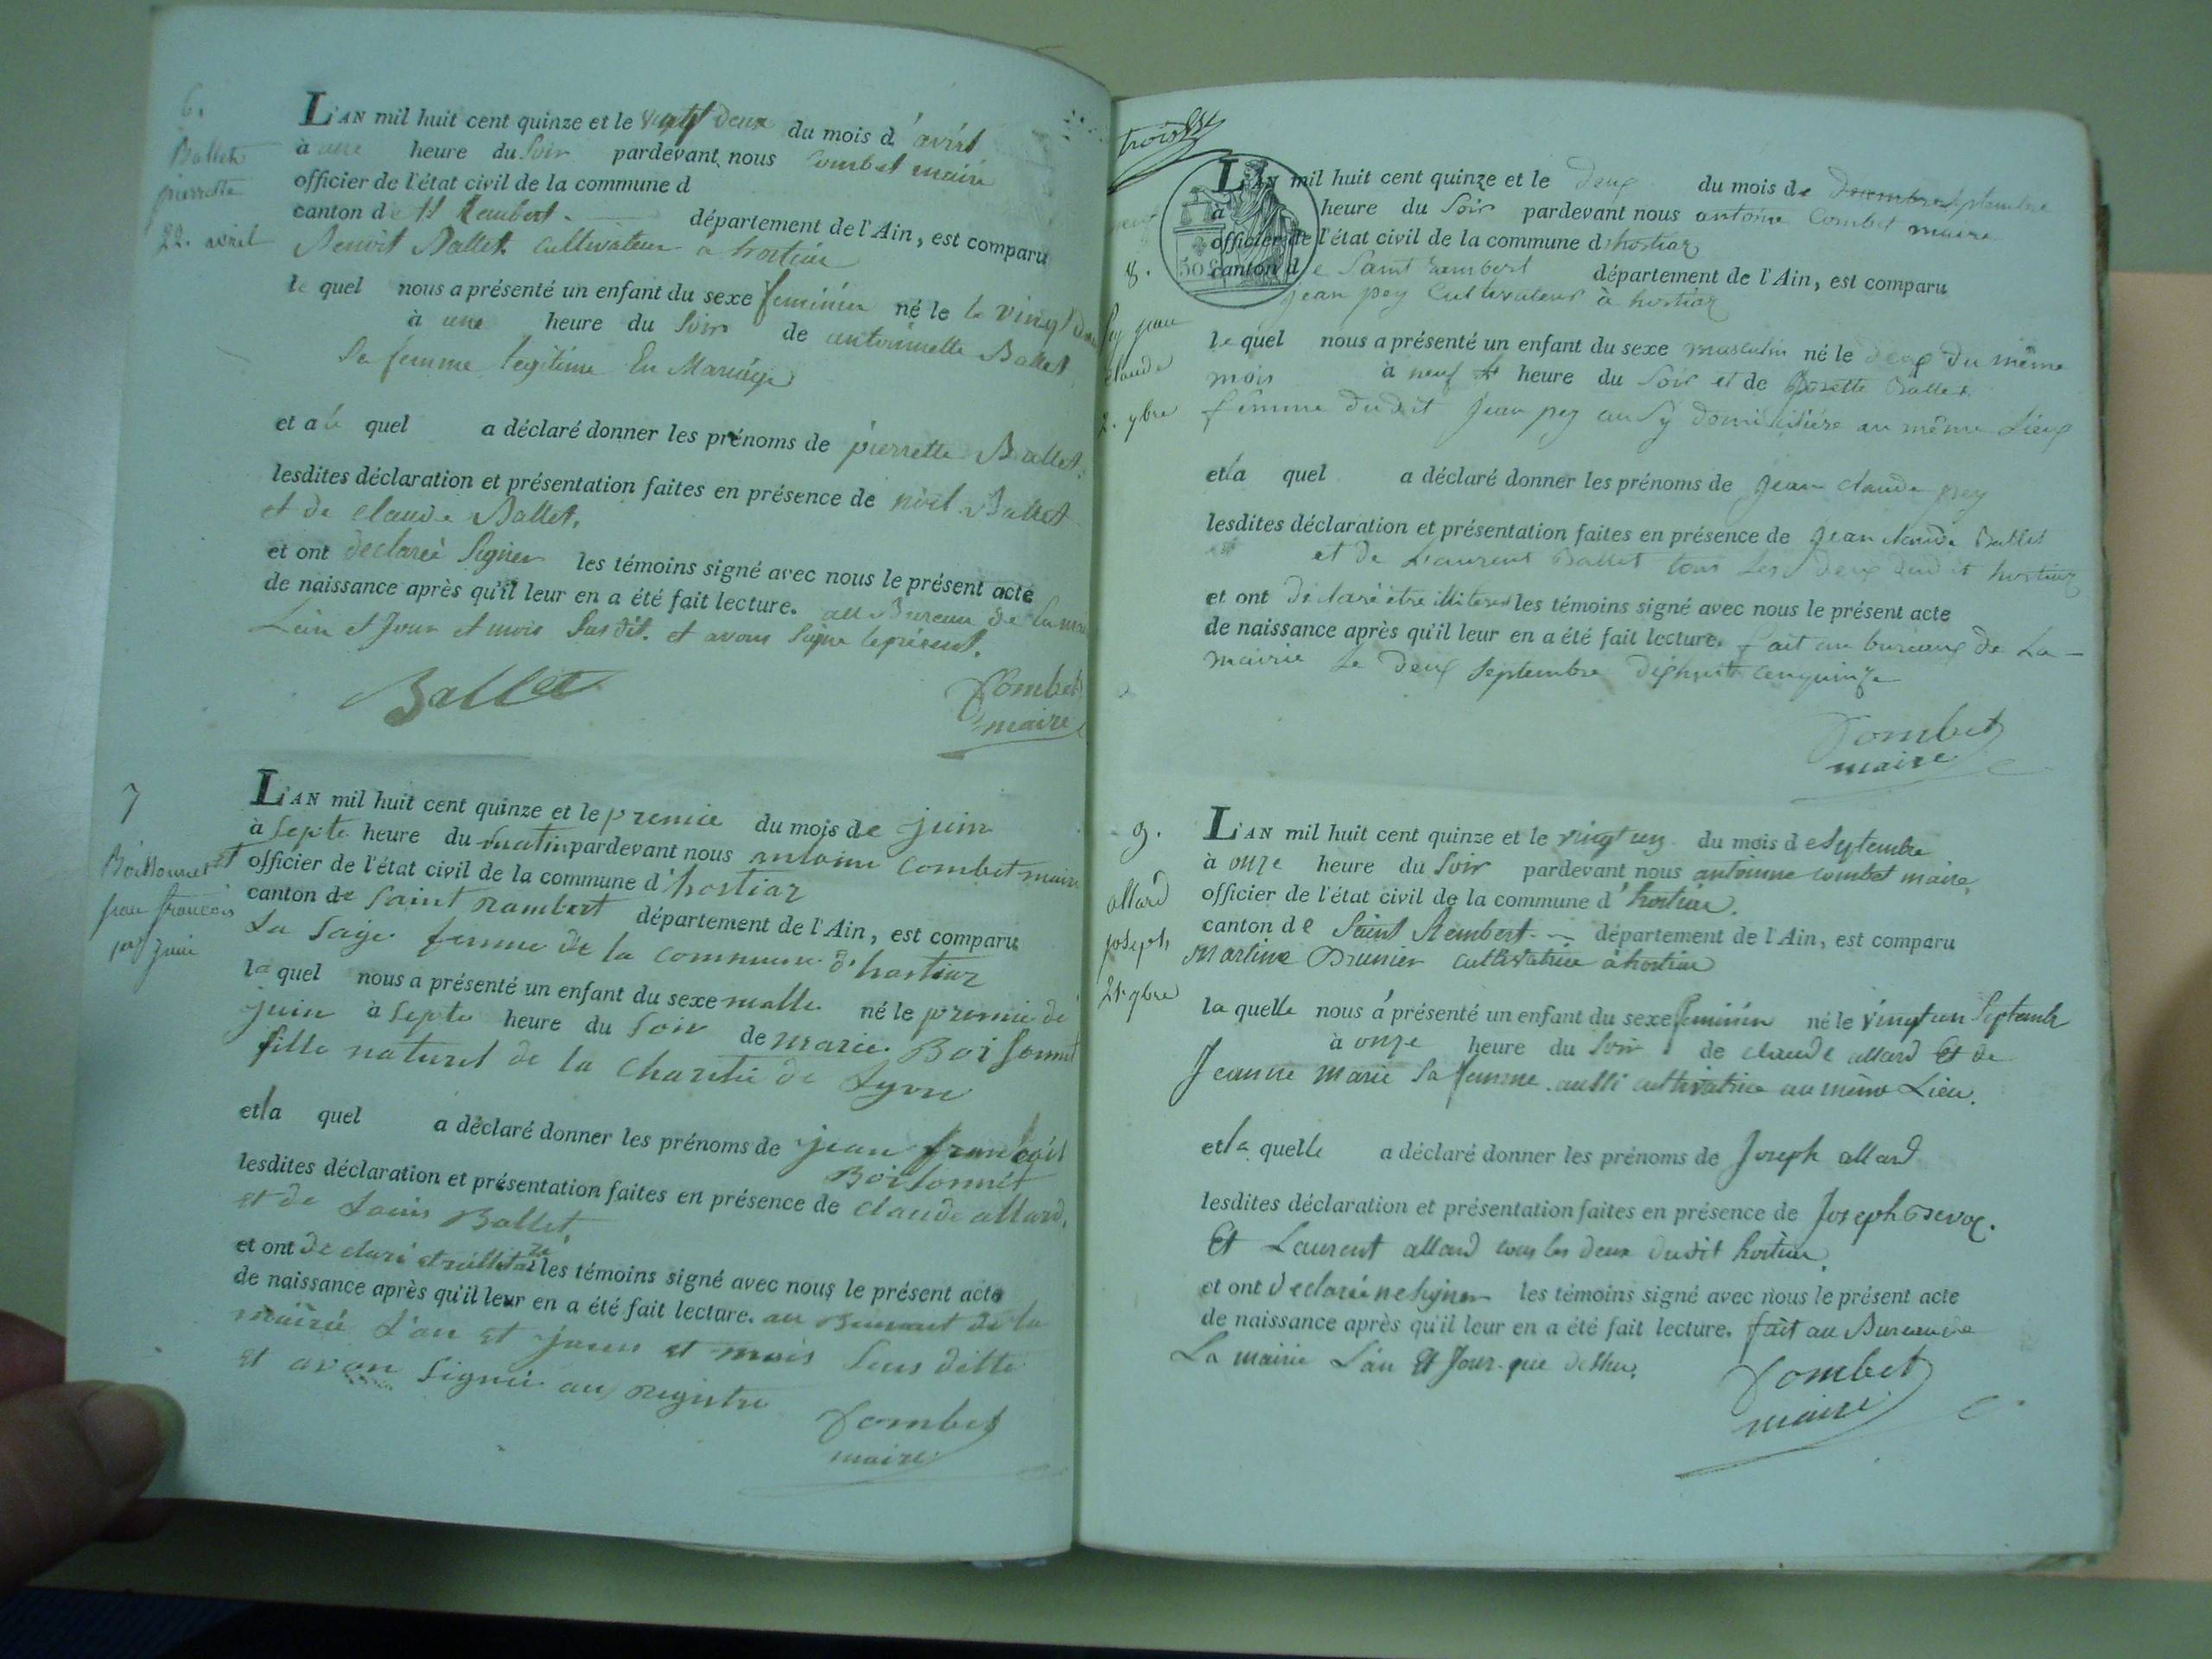 6.
Ballet
pierrette
22. avril
L'AN mil huit cent quinze et le vingt deux du mois d'avril
à une heure du soir pardevant nous Combet maire
officier de l'état civil de la commune d
canton de St Rambert. département de l'Ain, est comparu
Benoit Ballet cultivateur à hostiar
le quel nous a présenté un enfant du sexe feminin né le le vingt deux
à une heure du soir de antoinette Ballet
sa femme legitime En Mariage
et a quel a déclaré donner les prénoms de pierrette Ballet.
lesdites déclaration et présentation faites en présence de noël Ballet
et de claude Ballet.
et ont declareé signer les témoins signé avec nous le présent acte
de naissance après qu'il leur en a été fait lecture. au Bureau de la
L'an et Jour et mois susdit. et avons signe le présent.
Ballet
Combet
maire
7
Boissonnet
jean françois
1er juin
L'AN mil huit cent quinze et le premie du mois de juin
à septe heure du matin pardevant nous antoine Combet maire
officier de l'état civil de la commune d'hostiaz
canton de saint rambert département de l'Ain, est comparu
La sage femme de la commune d'hostiaz
la quel nous a présenté un enfant du sexe malle né le premie de
juin à septe heure du soir de marie Boissonnet
fille naturel de la Charité de Lyon
et la quel a déclaré donner les prénoms de jean francois
Boissonnet
lesdites déclaration et présentation faites en présence de claude allard.
et de Louis Ballet.
et ont declaré les témoins signé avec nous le présent acte
de naissance après qu'il leur en a été fait lecture. au de la
mairie L'an et jour et mois sus ditte
et avon signée au registre
Combet
maire
trois
50
8.
pey jean
claude
2. 7bre
L'AN mil huit cent quinze et le deux du mois de septembre
à heure du soir pardevant nous antoine Combet maire
officier de l'état civil de la commune d hostiaz
canton de Saint rambert département de l'Ain, est comparu
jean pey cultivateur à hostiaz
le quel nous a présenté un enfant du sexe masculin né le deux du même
mois à neuf heure du soir et de Ballet
femme dudit jean pey aussy au même Lieux
et la quel a déclaré donner les prénoms de jean claude pey
lesdites déclaration et présentation faites en présence de jean claude Ballet
et de Laurent Ballet tous les deux dudit hostiaz
et ont déclaré être les témoins signé avec nous le présent acte
de naissance après qu'il leur en a été fait lecture. fait au bureaux de La
mairie le deux septembre
Combet
maire
9.
allard
joseph
21. 7bre
L'AN mil huit cent quinze et le vingt un du mois de Septembre
à onze heure du soir pardevant nous antoinne combet maire,
officier de l'état civil de la commune d'hostiar.
canton de Saint Rembert département de l'Ain, est comparu
Martine Brunier cultivatrice à hostiar
la quelle nous a présenté un enfant du sexe feminin né le vingt un Septembre
à onze heure du soir de claude allard Et de
Jeanne marie sa femme aussi cultivatrice au même Lieu.
et la quelle a déclaré donner les prénoms de Joseph allard
lesdites déclaration et présentation faites en présence de Joseph
Et Laurent allard tous les deux dudit hostiar.
et ont declareé ne signer les témoins signé avec nous le présent acte
de naissance après qu'il leur en a été fait lecture. fait au Bureau de
La mairie L'an Et Jour que dessus.
Combet
maire